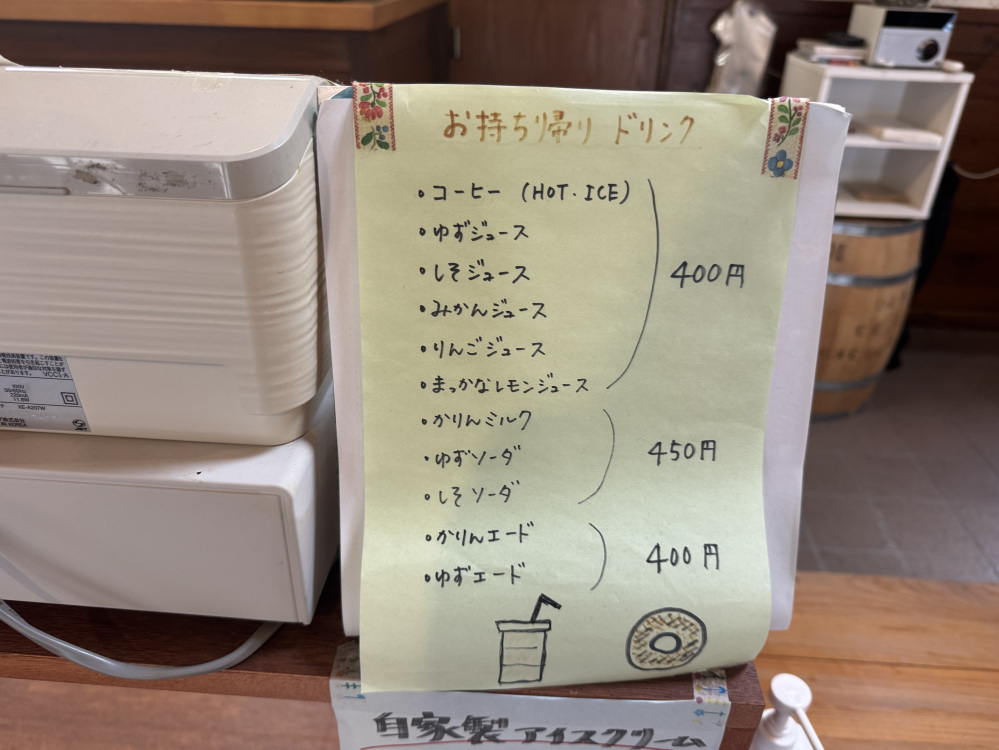 お持ち帰り ドリンク
・コーヒー (HOT・ICE)
・ゆずジュース
・しそジュース
・みかんジュース
・りんごジュース
・まっかなレモンジュース
400円
・かりんミルク
・ゆずソーダ
・しそソーダ
450円
・かりんエード
・ゆずエード
400円
自家製アイスクリーム
VCCI-A
100V
50/60Hz
XE-A207W